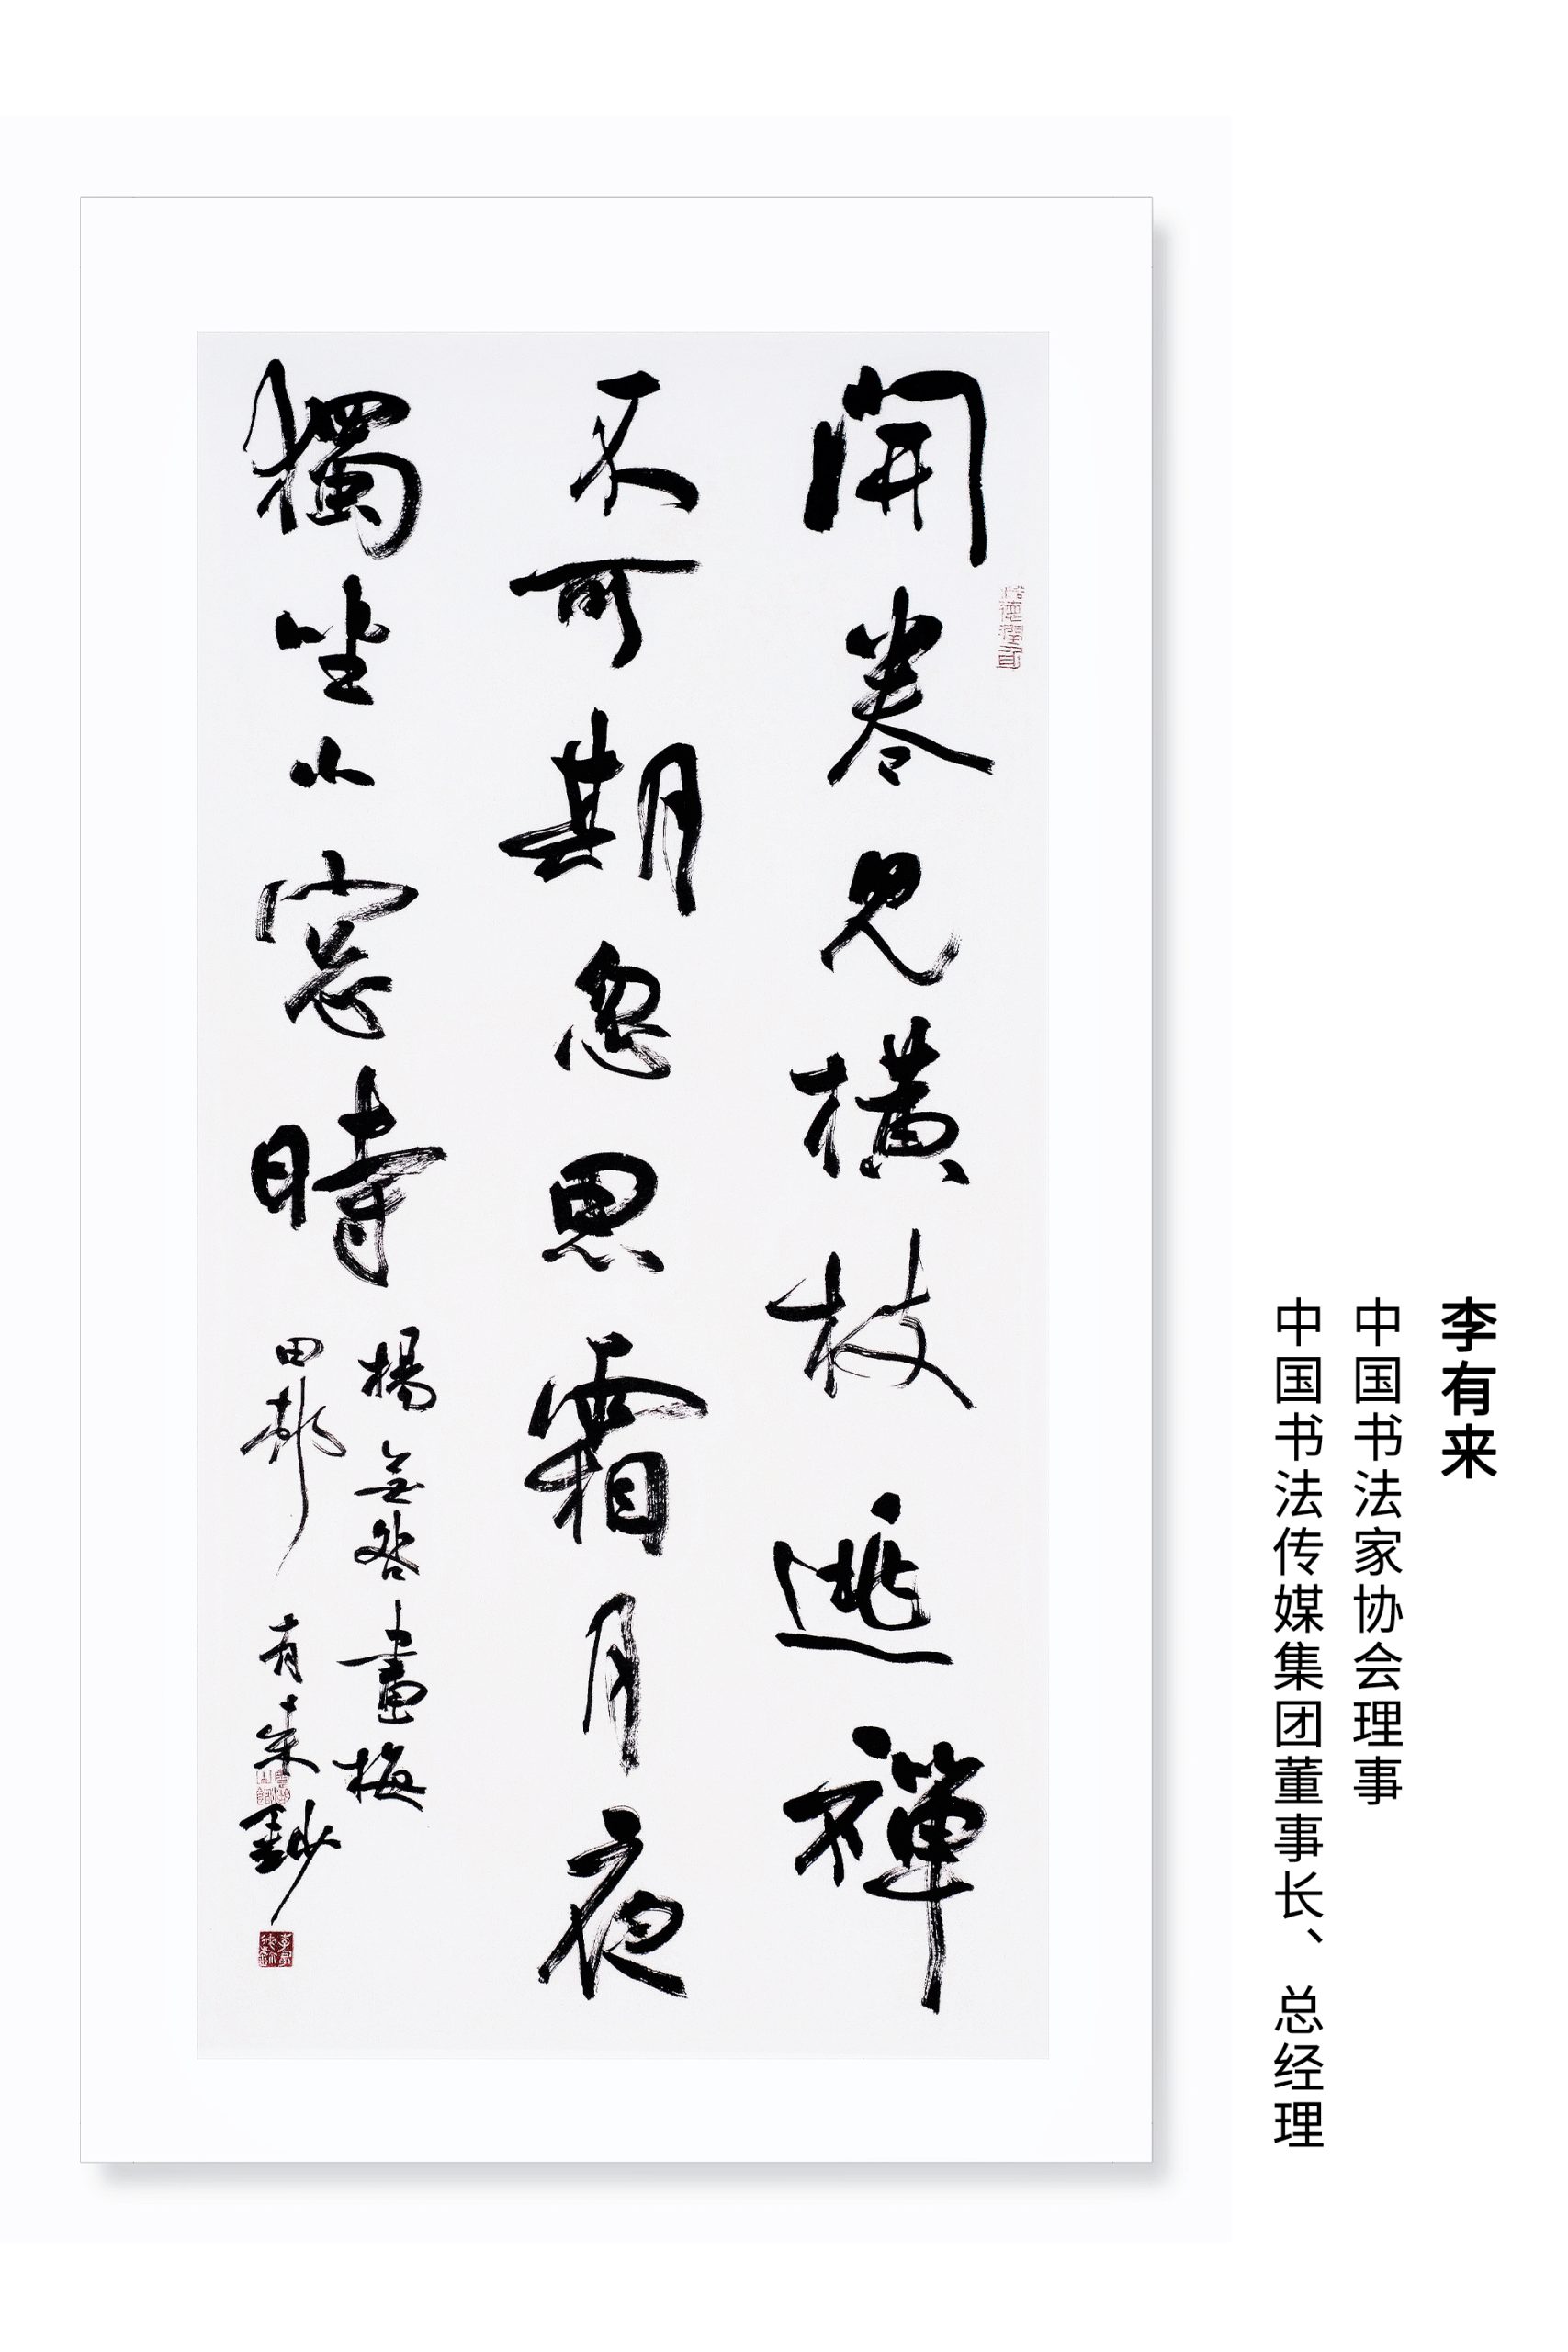 李有来
中国书法家协会理事
中国书法传媒集团董事长、总经理
開卷見橫枝逃禪
不可期忽思霜月夜
獨坐小窓時
楊無咎畫梅
有來鈔